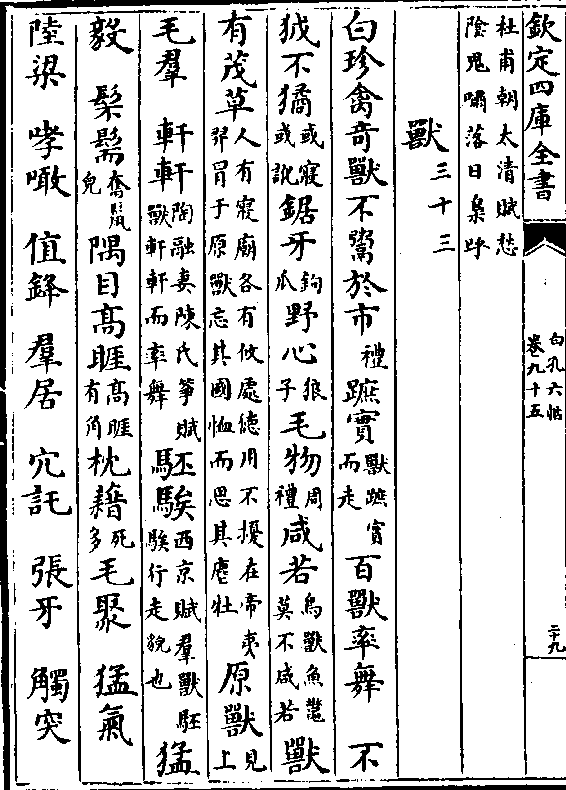 欽定四庫全書
白孔六帖
卷九十五
二十九
杜甫朝太清賦愁
陰鬼嘯落日梟呼
獸三十三
白珍禽奇獸不鬻於市禮蹠實獸蹠實而走百獸率舞不
狘不獝或寢或訛鋸牙鉤爪野心狼子毛物周禮咸若鳥獸魚鼈莫不咸若獸
有茂草人有寢廟各有攸處德用不擾在帝夷羿冒于原獸忘其國恤而思其麀牡原獸見上
毛羣軒軒陶融妻陳氏箏賦獸軒軒而率舞駓騃西京賦羣獸駓騃行走貌也猛
毅髤髵奮鬣貌隅目高眶高眶有角枕藉死多毛聚猛氣
陸梁哮噉值鋒羣居穴託張牙觸突